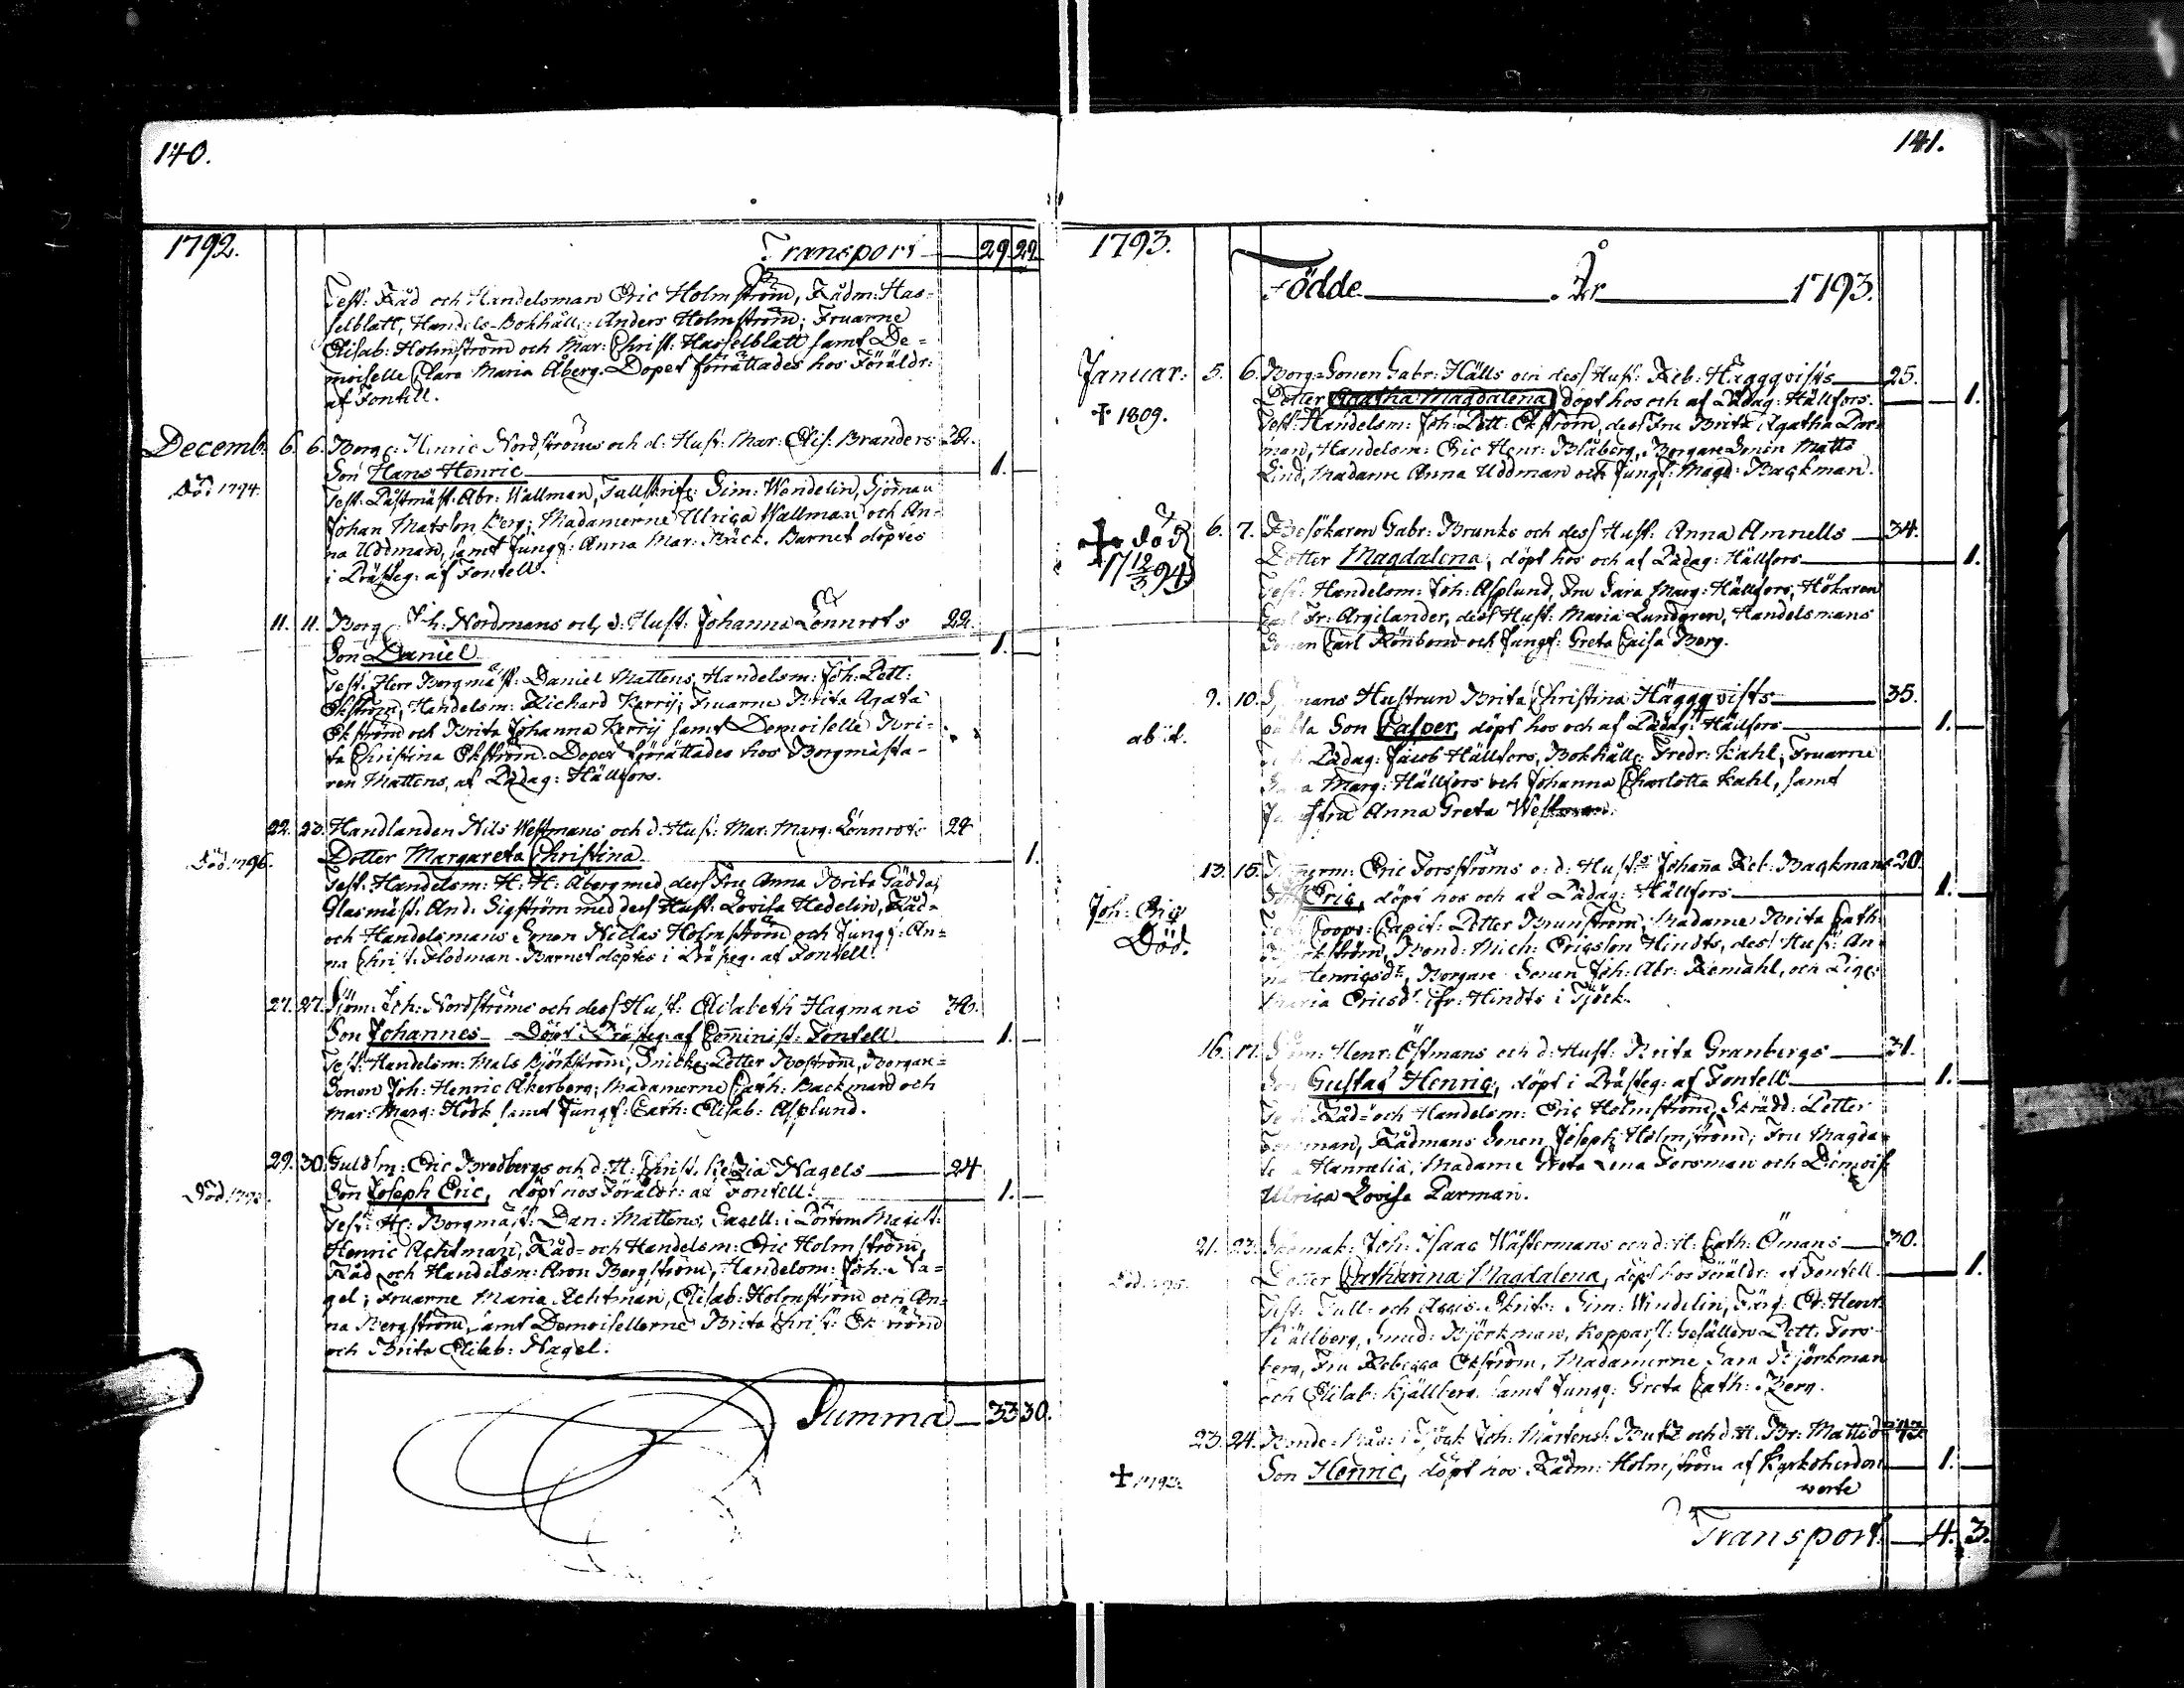 140.
1792.
Transport 29 29
Test: Råd och Handelsman Eric Holmström, Rådm: Has-
selblatt, Handels-Bokhåll: Anders Holmström; Fruarne
Elisab: Holmström och Mar: Christ: Hasselblatt samt De-
moiselle Clara Maria Åberg. Dopet förrättades hos Föräldr:
af Fontell.
Decemb: 6. 6. Borg: Henric Nordströms och d: Hust: Mar: Elis: Branders 28.
Son Hans Henric 1.
Död 1794.
Test: Påstmäst: Abr: Wallman, Tullskrif: Sim: Wendelin, Sjöman
Johan Matsson Berg; Madamerne Ulrica Wallman och An-
na Uddman, samt Jungf: Anna Mar: Bäck. Barnet döptes
i Prästeg: af Fontell.
11. 11. Borg Joh: Nordmans och d: Hust: Johanna Lönnrots 22.
Son Daniel 1.
Test: Herr Borgmäst: Daniel Mattens, Handelsm: Joh: Pett:
Ekström, Handelsm: Richard Kerrij; Fruarne Brita Agata
Ekström och Brita Johanna Kerrij samt Demoiselle Bri-
ta Christina Ekström. Dopet förrättades hos Borgmästa-
ren Mattens, af Pädag: Hällfors.
22. 23. Handlanden Nils Westmans och d: Hust: Mar: Marg: Lönnrots 24
Död 1796.
Dotter Margareta Christina 1.
Test: Handelsm: H: H: Åberg med dess Fru Anna Brita Gädda;
Glasmäst: And: Sigström med dess Hust: Lovisa Hedelin, Råd-
och Handelsmans Sonen Niclas Holmström och Jungf: An-
na Christ: Flodman. Barnet döptes i Prästeg: af Fontell.
27. 27. Sjöm: Joh: Nordströms och dess Hust: Elisabeth Hagmans 30.
Son Johannes Döpt i Prästeg: af Comminist: Fontell 1.
Test: Handelsm: Mats Björkström, Snick: Petter Boström, Borgare-
Sonen Joh: Henric Åkerberg; Madamerne Cath: Backman och
Mar: Marg: Höök samt Jungf: Cath: Elisab: Asplund.
29. 30. Guldsm: Eric Bredbergs och d: H: Christ: Kezia Nagels 24
Son Joseph Eric, döpt hos Föräldr: af Fontell. 1.
Test: Hr: Borgmäst: Dan: Mattens, Capell: i Pörtom Magist:
Henric Achtman, Råd- och Handelsm: Eric Holmström,
Råd och Handelsm: Aron Bergström, Handelsm: Joh: Na-
gel; Fruarne Maria Achtman, Elisab: Holmström och An-
na Bergström, samt Demoisellerne Brita Christ: Ekström
och Brita Elisab: Nagel.
Summa 33 30.
141.
1793.
Födde År 1793.
Januar: 5. 6. Borg: Sonen Gabr: Hälls och dess Hust: Reb: Häggqvists 25.
Dotter Agatha Magdalena döpt hos och af Pädag: Hällfors. 1.
† 1809.
Test: Handelsm: Joh: Pett: Ekström, dess Fru Brita Agatha Par-
man, Handelsm: Eric Henr: Blåberg, Borgare Sonen Matts
Lind, Madame Anna Uddman och Jungf: Magd: Backman.
† död
17 12/3 94
6. 7. Besökaren Gabr: Brunks och dess Hust: Anna Amnells 34.
Dotter Magdalena, döpt hos och af Pädag: Hällfors 1.
Test: Handelsm: Joh: Asplund, Fru Sara Marg: Hällfors, Hökaren
Carl Fr: Argilander, dess Hust: Maria Lundgren, Handelsmans
Sonen Carl Rönbom och Jungf: Greta Caisa Borg.
9. 10. mans Hustrun Brita Christina Häggqvists 35.
Son Casper, döpt hos och af Pädag: Hällfors 1.
Pädag: Jacob Hällfors, Bokhåll: Fredr: Kahl, Fruarne
Sara Marg: Hällfors och Johanna Charlotta Kahl, samt
Anna Greta Westman.
13. 15. Eric Forsströms o: d: Hust: Johanna Reb: Backmans 20.
Eric, döpt hos och af Pädag: Hällfors 1.
Joh: Eric
Död.
Coop: Capit: Petter Brunström, Madame Brita Cath:
Bond: Mich: Ericsson Hindts, dess Hust: An-
na Henricsdr, Borgare Sonen Joh: Abr: Remahl, och Pig:
Maria Ericsdr ifr: Hindts i Tjöck.
16. 17. Henr: Östmans och d: Hust: Brita Granbergs 31.
Son Gustaf Henric, döpt i Prästeg: af Fontell 1.
Råd- och Handelsm: Eric Holmström, Skrädd: Petter
Forsman, Rådmans Sonen Joseph Holmström; Fru Magda-
lena Hannelia, Madame Greta Lena Forsman och Demois:
Ulrica Lovisa Parman.
21. 23. Joh: Isaac Wästermans och d: H: Cath: Ömans 30.
Dotter Catharina Magdalena, döpt hos Föräldr: af Fontell. 1.
Test: Tull- och Accis-Skrif: Sim: Windelin, Färg: Er: Henr:
Kjällberg, Smed: Björkman, Kopparsl: Gesällen Pett: Fors-
berg, Fru Rebecca Ekström, Madamerne Sara Björkman
och Elisab: Kjällberg samt Jungf: Greta Cath: Berg.
23. 24. Bonde: Måg: i Tjöck Joh: Mårtens: Butz och d: H: Br: Mattsd: 43
† 1793.
Son Henric, döpt hos Rådm: Holmström af Kyrkoherden 1.
Transport 4. 3.